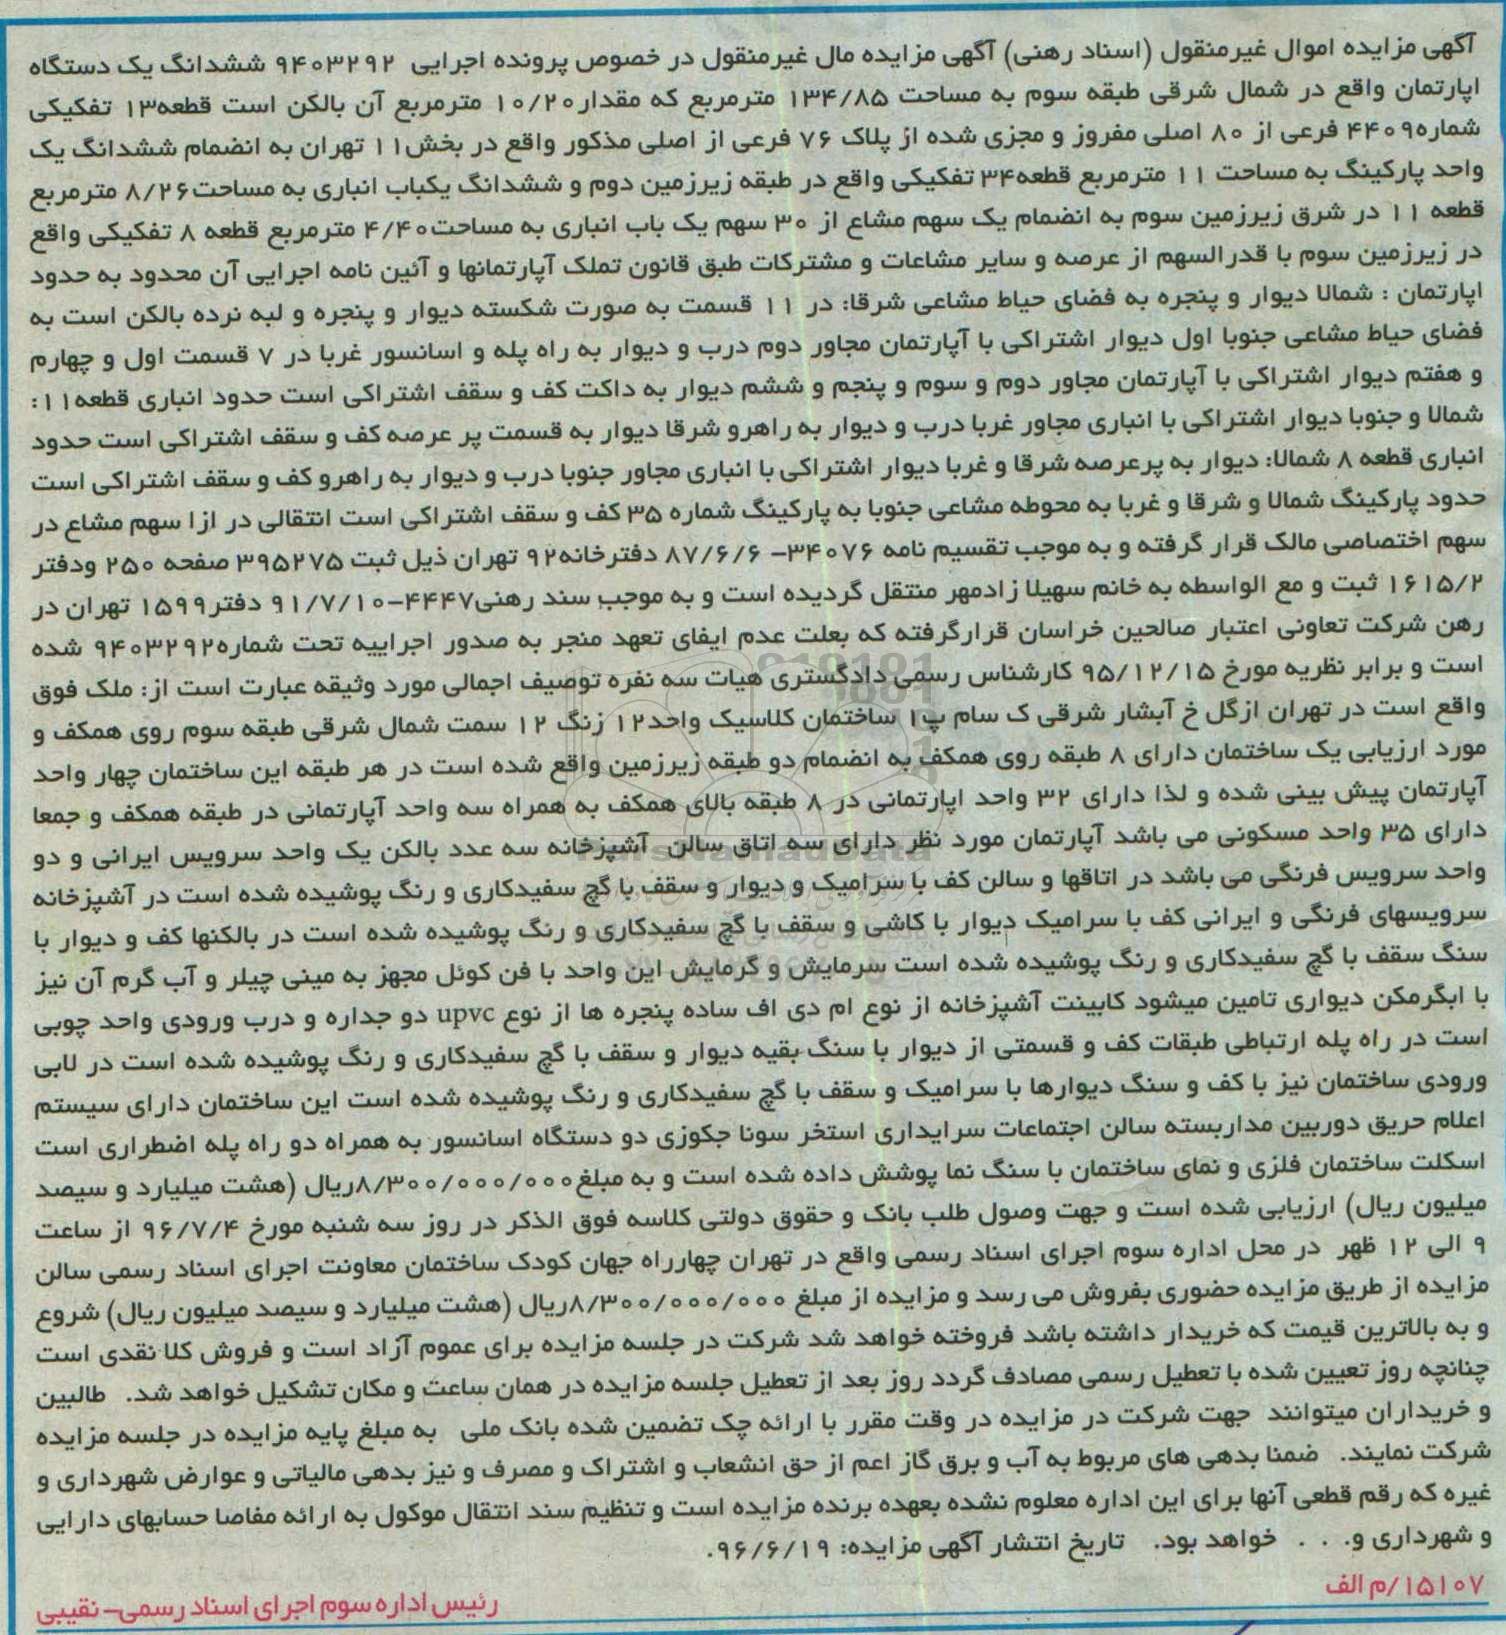 آگهی مزایده اموال غیرمنقول (اسناد رهنی) آگهی مزایده مال غیرمنقول در خصوص پرونده اجرایی ۹۴۰۳۲۹۲ ششدانگ یک دستگاه
اپارتمان واقع در شمال شرقی طبقه سوم به مساحت ۱۳۴/۸۵ مترمربع که مقدار۱۰/۲۰ مترمربع آن بالکن است قطعه۱۳ تفکیکی
شماره۴۴۰۹ فرعی از ۸۰ اصلی مفروز و مجزی شده از پلاک ۷۶ فرعی از اصلی مذکور واقع در بخش۱۱ تهران به انضمام ششدانگ یک
واحد پارکینگ به مساحت ۱۱ مترمربع قطعه۳۴ تفکیکی واقع در طبقه زیرزمین دوم و ششدانگ یکباب انباری به مساحت۸/۲۶ مترمربع
قطعه ۱۱ در شرق زیرزمین سوم به انضمام یک سهم مشاع از ۳۰ سهم یک باب انباری به مساحت۴/۴۰ مترمربع قطعه ۸ تفکیکی واقع
در زیرزمین سوم با قدرالسهم از عرصه و سایر مشاعات و مشترکات طبق قانون تملک آپارتمانها و آئین نامه اجرایی آن محدود به حدود
اپارتمان : شمالا دیوار و پنجره به فضای حیاط مشاعی شرقا: در ۱۱ قسمت به صورت شکسته دیوار و پنجره و لبه نرده بالکن است به
فضای حیاط مشاعی جنوبا اول دیوار اشتراکی با آپارتمان مجاور دوم درب و دیوار به راه پله و اسانسور غربا در ۷ قسمت اول و چهارم
و هفتم دیوار اشتراکی با آپارتمان مجاور دوم و سوم و پنجم و ششم دیوار به داکت کف و سقف اشتراکی است حدود انباری قطعه۱۱:
شمالا و جنوبا دیوار اشتراکی با انباری مجاور غربا درب و دیوار به راهرو شرقا دیوار به قسمت پر عرصه کف و سقف اشتراکی است حدود
انباری قطعه ۸ شمالا: دیوار به پرعرصه شرقا و غربا دیوار اشتراکی با انباری مجاور جنوبا درب و دیوار به راهرو کف و سقف اشتراکی است
حدود پارکینگ شمالا و شرقا و غربا به محوطه مشاعی جنوبا به پارکینگ شماره ۳۵ کف و سقف اشتراکی است انتقالی در ازا سهم مشاع در
سهم اختصاصی مالک قرار گرفته و به موجب تقسیم نامه ۳۴۰۷۶- ۸۷/۶/۶ دفترخانه۹۲ تهران ذیل ثبت ۳۹۵۲۷۵ صفحه ۲۵۰ ودفتر
۱۶۱۵/۲ ثبت و مع الواسطه به خانم سهیلا زادمهر منتقل گردیده است و به موجب سند رهنی۴۴۴۷-۹۱/۷/۱۰ دفتر۱۵۹۹ تهران در
رهن شرکت تعاونی اعتبار صالحین خراسان قرارگرفته که بعلت عدم ایفای تعهد منجر به صدور اجراییه تحت شماره۹۴۰۳۲۹۲ شده
است و برابر نظریه مورخ ۹۵/۱۲/۱۵ کارشناس رسمی دادگستری هیات سه نفره توصیف اجمالی مورد وثیقه عبارت است از: ملک فوق
واقع است در تهران ازگل خ آبشار شرقی ک سام پ۱ ساختمان کلاسیک واحد۱۲ زنگ ۱۲ سمت شمال شرقی طبقه سوم روی همکف و
مورد ارزیابی یک ساختمان دارای ۸ طبقه روی همکف به انضمام دو طبقه زیرزمین واقع شده است در هر طبقه این ساختمان چهار واحد
آپارتمان پیش بینی شده و لذا دارای ۳۲ واحد اپارتمانی در ۸ طبقه بالای همکف به همراه سه واحد آپارتمانی در طبقه همکف و جمعا
دارای ۳۵ واحد مسکونی می باشد آپارتمان مورد نظر دارای سه اتاق سالن آشپزخانه سه عدد بالکن یک واحد سرویس ایرانی و دو
واحد سرویس فرنگی می باشد در اتاقها و سالن کف با سرامیک و دیوار و سقف با گچ سفیدکاری و رنگ پوشیده شده است در آشپزخانه
سرویسهای فرنگی و ایرانی کف با سرامیک دیوار با کاشی و سقف با گچ سفیدکاری و رنگ پوشیده شده است در بالکنها کف و دیوار با
سنگ سقف با گچ سفیدکاری و رنگ پوشیده شده است سرمایش و گرمایش این واحد با فن کوئل مجهز به مینی چیلر و آب گرم آن نیز
با ابگرمکن دیواری تامین میشود کابینت آشپزخانه از نوع ام دی اف ساده پنجره ها از نوع upvc دو جداره و درب ورودی واحد چوبی
است در راه پله ارتباطی طبقات کف و قسمتی از دیوار با سنگ بقیه دیوار و سقف با گچ سفیدکاری و رنگ پوشیده شده است در لابی
ورودی ساختمان نیز با کف و سنگ دیوارها با سرامیک و سقف با گچ سفیدکاری و رنگ پوشیده شده است این ساختمان دارای سیستم
اعلام حریق دوربین مداربسته سالن اجتماعات سرایداری استخر سونا جکوزی دو دستگاه اسانسور به همراه دو راه پله اضطراری است
اسکلت ساختمان فلزی و نمای ساختمان با سنگ نما پوشش داده شده است و به مبلغ۸/۳۰۰/۰۰۰/۰۰۰ریال (هشت میلیارد و سیصد
میلیون ریال) ارزیابی شده است و جهت وصول طلب بانک و حقوق دولتی کلاسه فوق الذکر در روز سه شنبه مورخ ۹۶/۷/۴ از ساعت
۹ الی ۱۲ ظهر در محل اداره سوم اجرای اسناد رسمی واقع در تهران چهارراه جهان کودک ساختمان معاونت اجرای اسناد رسمی سالن
مزایده از طریق مزایده حضوری بفروش می رسد و مزایده از مبلغ ۸/۳۰۰/۰۰۰/۰۰۰ریال (هشت میلیارد و سیصد میلیون ریال) شروع
و به بالاترین قیمت که خریدار داشته باشد فروخته خواهد شد شرکت در جلسه مزایده برای عموم آزاد است و فروش کلا نقدی است
چنانچه روز تعیین شده با تعطیل رسمی مصادف گردد روز بعد از تعطیل جلسه مزایده در همان ساعت و مکان تشکیل خواهد شد. طالبین
و خریداران میتوانند جهت شرکت در مزایده در وقت مقرر با ارائه چک تضمین شده بانک ملی به مبلغ پایه مزایده در جلسه مزایده
شرکت نمایند. ضمنا بدهی های مربوط به آب و برق گاز اعم از حق انشعاب و اشتراک و مصرف و نیز بدهی مالیاتی و عوارض شهرداری و
غیره که رقم قطعی آنها برای این اداره معلوم نشده بعهده برنده مزایده است و تنظیم سند انتقال موکول به ارائه مفاصا حسابهای دارایی
و شهرداری و. . . خواهد بود. تاریخ انتشار آگهی مزایده: ۹۶/۶/۱۹.
۱۵۱۰۷/م الف
رئیس اداره سوم اجرای اسناد رسمی- نقیبی